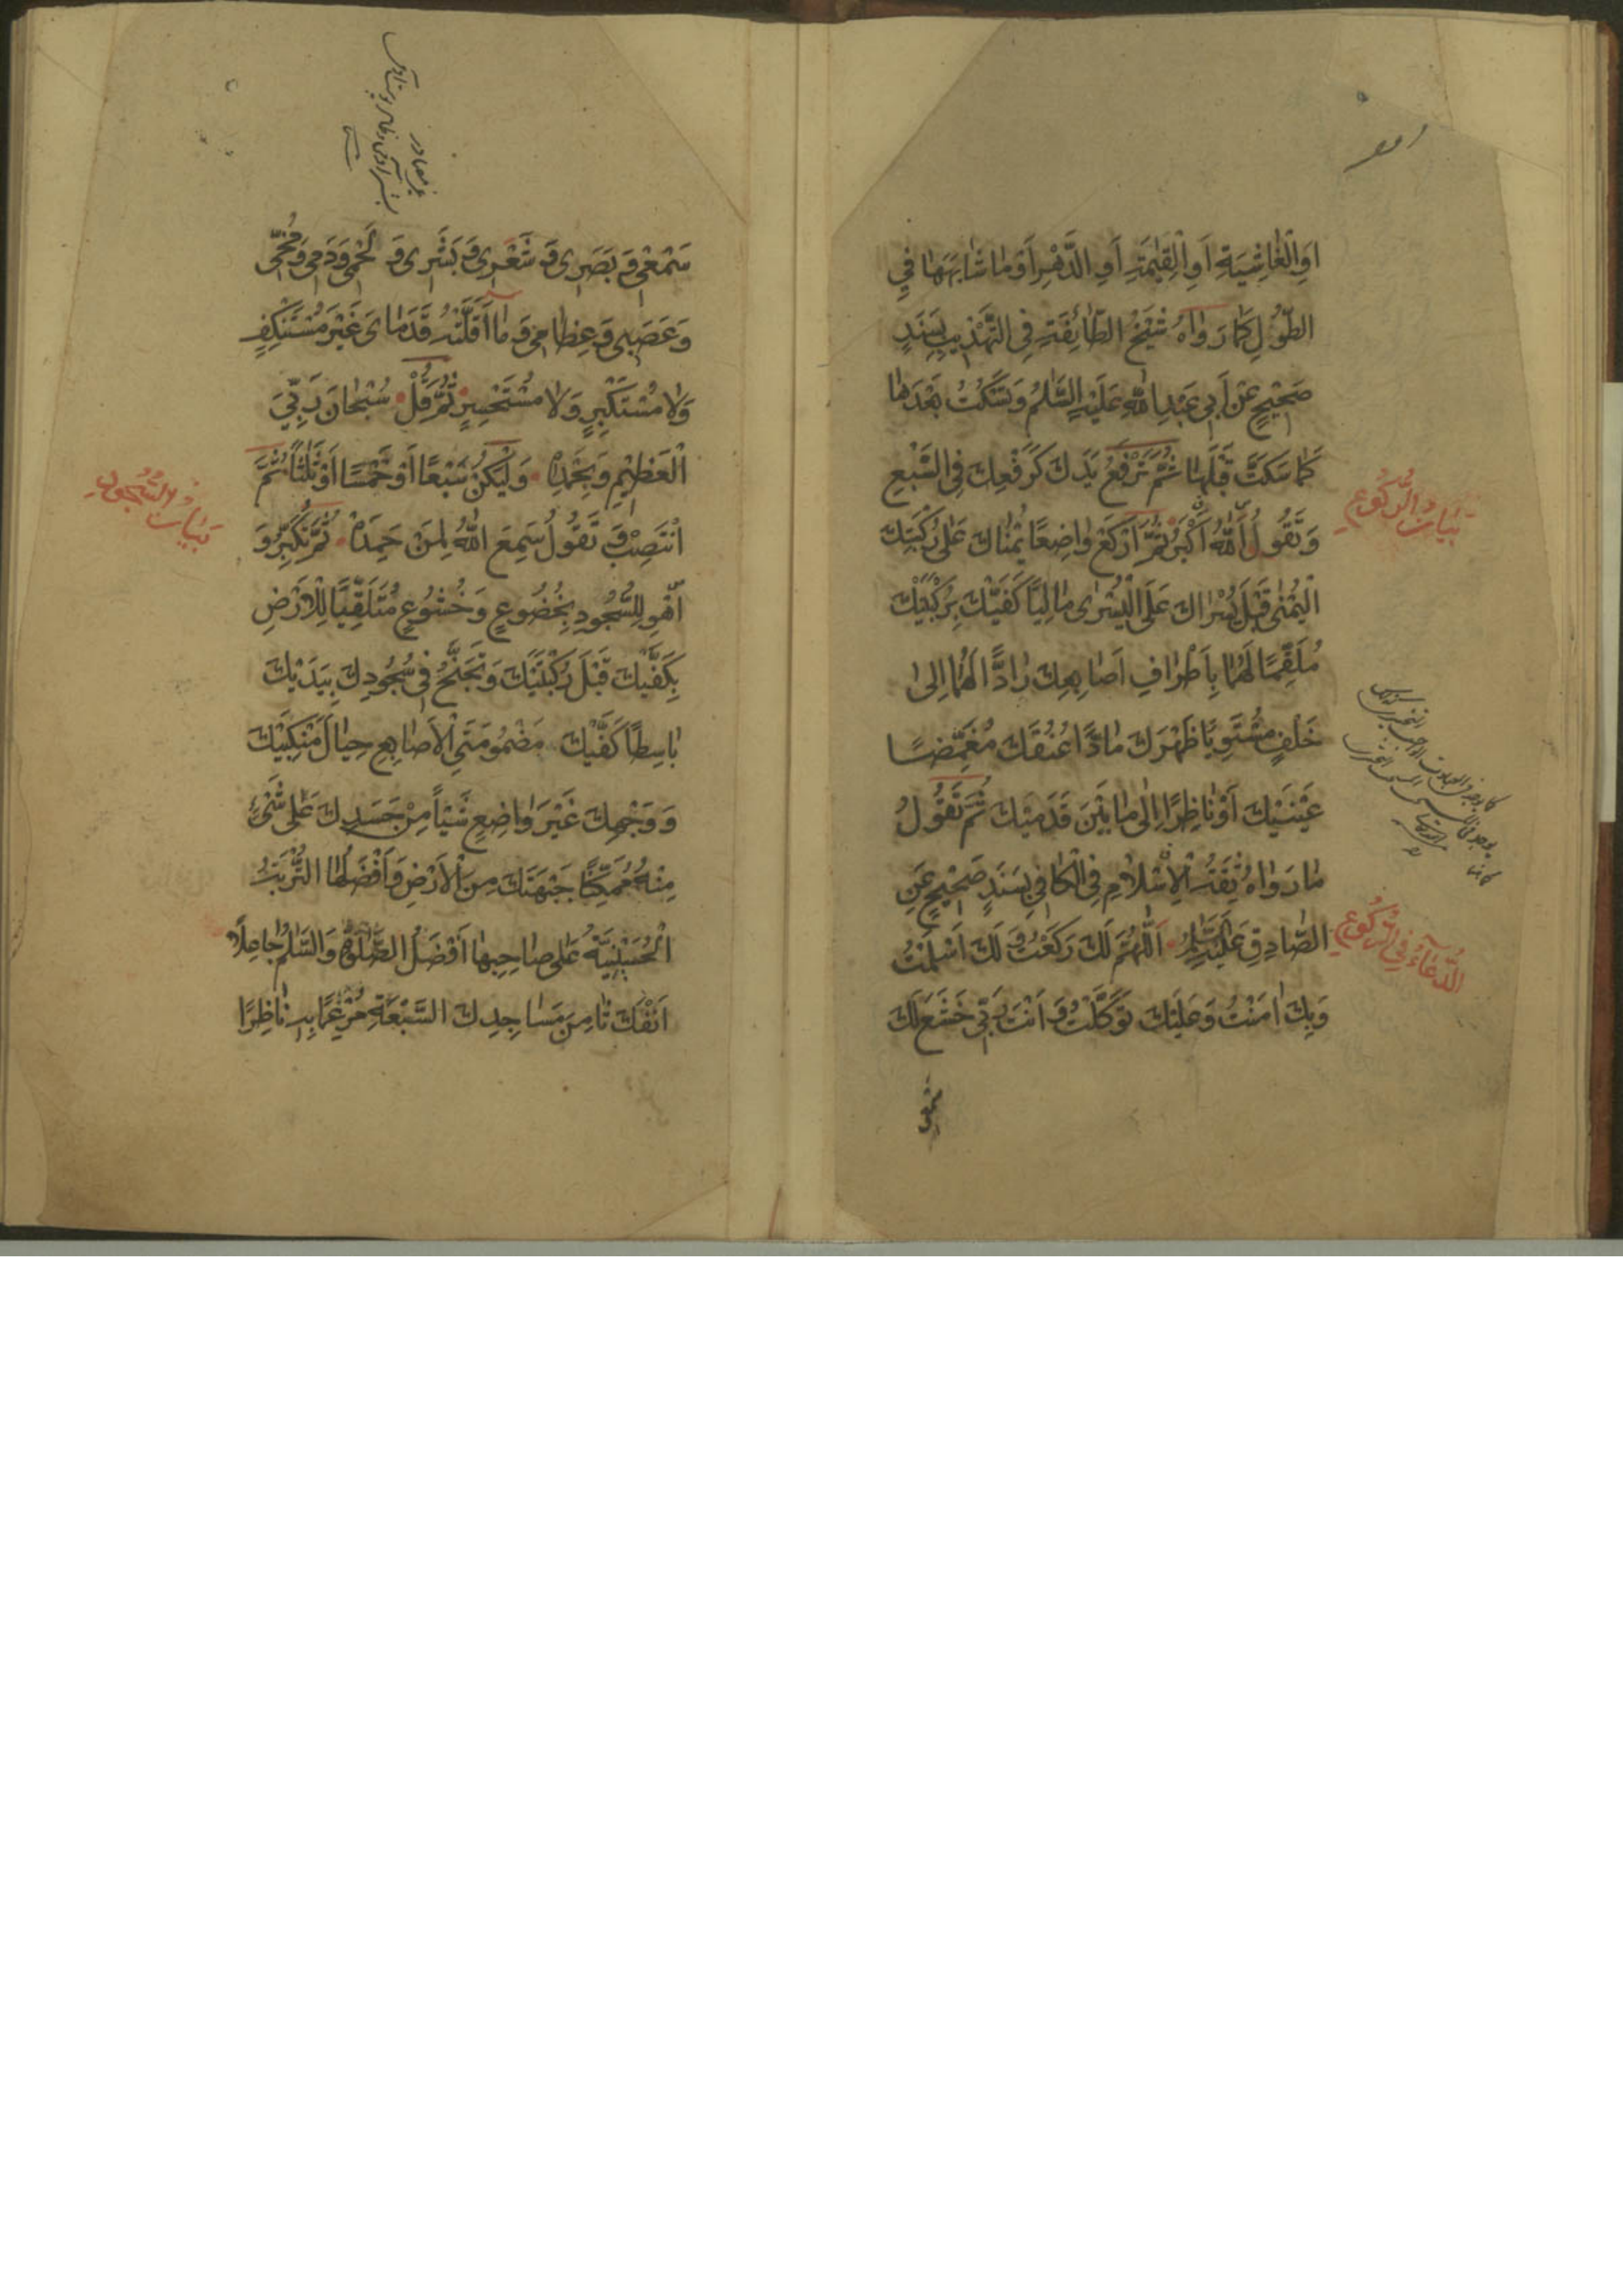 اَوِالْغٰاشِيَةِ اَوِالْقِيٰمَةِ اَوِ الدَّهْرِ اَوْمٰا شٰابَهَهٰا فِي
الطُّوْلِ كَمٰا رَوٰاهُ شَيْخُ الطّٰائِفَةِ فِى التَّهْذِيبِ بِسَنَدٍ
صَحِيْحٍ عَنْ اَبِى عَبْدِ اللّٰهِ عَلَيْهِ السَّلٰمُ وَتَسْكُتُ بَعْدَهٰا
كَمٰا سَكَتَّ قَبْلَهٰا ثُمَّ تَرْفَعُ يَدَكَ كَرَفْعِكَ فِى السَّبْعِ
وَتَقُولُ اَللّٰهُ اَكْبَرُ ثُمَّ ارْكَعْ وٰاضِعًا يُمْنٰاكَ عَلٰى رُكْبَتِكَ
الْيُمْنٰى قَبْلَ يُسْرٰاكَ عَلَى الْيُسْرٰى مٰالِيًا كَفَّيْكَ بِرُكْبَتَيْكَ
مُلَقِّمًا لَهُمٰا بِاَطْرٰافِ اَصٰابِعِكَ رٰادًّا لَهُمٰا اِلٰى
خَلْفٍ مُسْتَوِيًا ظَهْرَكَ مٰادًّا عُنُقَكَ مُغَمِّضًا
عَيْنَيْكَ اَوْ نٰاظِرًا اِلٰى مٰا بَيْنَ قَدَمَيْكَ ثُمَّ تَقُولُ
مٰا رَوٰاهُ ثِقَةُ الْاِسْلٰامِ فِى الْكٰافِى بِسَنَدٍ صَحِيْحٍ عَنِ
الصّٰادِقِ عَلَيْهِ السَّلٰمُ اَللّٰهُمَّ لَكَ رَكَعْتُ وَ لَكَ اَسْلَمْتُ
وَبِكَ اٰمَنْتُ وَعَلَيْكَ تَوَكَّلْتُ وَ اَنْتَ رَبِّى خَشَعَ لَكَ
بَيٰان الرُّكُوْعِ
الدُّعٰآءُ فِى الرُّكُوْعِ
سَمْعِى وَ بَصَرِى وَ شَعْرِى وَ بَشَرِى وَ لَحْمِى وَدَمِى وَمُخِّى
وَعَصَبِى وَ عِظٰامِى وَ مٰا اَقَلَّتْهُ قَدَمٰاىَ غَيْرَ مُسْتَنْكِفٍ
وَلٰا مُسْتَكْبِرٍ وَلٰا مُسْتَحْسِرٍ ثُمَّ قُلْ سُبْحٰانَ رَبِّيَ
الْعَظِيْمِ وَبِحَمْدِهٖ وَلْيَكُنْ سَبْعًا اَوْ خَمْسًا اَوْ ثَلٰثًا ثُمَّ
انْتَصِبْ وَ تَقُولُ سَمِعَ اللّٰهُ لِمَنْ حَمِدَهُ ثُمَّ تُكَبِّرُ وَ
اَهْوِ لِلسُّجُودِ بِخُضُوعٍ وَ خُشُوعٍ مُتَلَقِّيًا لِلْاَرْضِ
بِكَفَّيْكَ قَبْلَ رُكْبَتَيْكَ وَتُجَنِّحُ فِى سُجُودِكَ بِيَدَيْكَ
بٰاسِطًا كَفَّيْكَ مَضْمُومَتَىِ الْاَصٰابِعِ حِيٰالَ مَنْكِبَيْكَ
وَ وَجْهِكَ غَيْرَ وٰاضِعٍ شَيْئًا مِنْ جَسَدِكَ عَلٰى شَىْءٍ
مِنْهُ مُمَكِّنًا جَبْهَتَكَ مِنَ الْاَرْضِ وَاَفْضَلُهٰا التُّرْبَةُ
الْحُسَيْنِيَّةُ عَلٰى صٰاحِبِهٰا اَفْضَلُ الصَّلٰوةِ وَالسَّلٰمُ جٰاعِلًا
اَنْفَكَ ثٰامِنَ مَسٰاجِدِكَ السَّبْعَةِ مُرْغِمًا بِهٖ نٰاظِرًا
بَيٰان السُّجُودِ